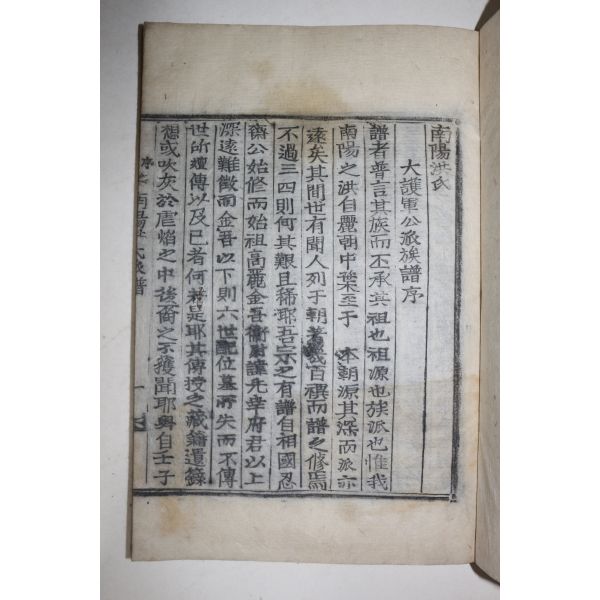 南陽洪氏
大護軍公派族譜序
譜者普言其族而丕承其祖也祖源也族派也惟我
南陽之洪自麗朝中葉至于 本朝源其深而派亦
遠矣其間也有聞人列于朝著幾百禩而譜之修焉
不過三四則何其艱且稀耶吾宗之有譜自相國忍
齋公始修而始祖高麗金吾衛尉諱先幸府君以上
深遠難徵而金吾以下則六世配位墓所失而不傳
世所擅傳以及已者何若是耶其傳授之藏籍遺錄
想或吹灰於虐焰之中後裔之不獲聞耶粤自壬子
序 南陽洪氏派譜 一